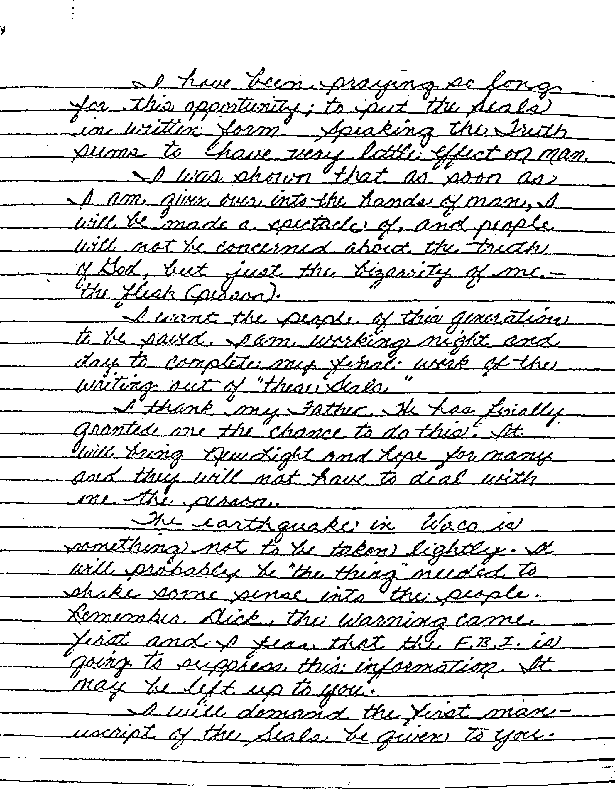 I have been praying so long
for this opportunity; to put the Seals
in written form Speaking the Truth
seems to have very little effect on man.
I was shown that as soon as
I am given over into the hands of man, I
will be made a spectacle of, and people
will not be concerned about the truth
of God, but just the bizarrity of me -
the flesh (person).
I want the people of this generation
to be saved. I am working night and
day to complete my final work of the
writing out of "these Seals."
I thank my Father. He has finally
granted me the chance to do this. It
will bring New Light and hope for many
and they will not have to deal with
me the person.
The earthquake in Waco is
something not to be taken lightly. It
will probably be "the thing" needed to
shake some sense into the people.
Remember Dick, the warning came
first and I fear that the F.B.I. is
going to suppress this information. It
may be left up to you.
I will demand the first man-
uscript of the Seals be given to you.